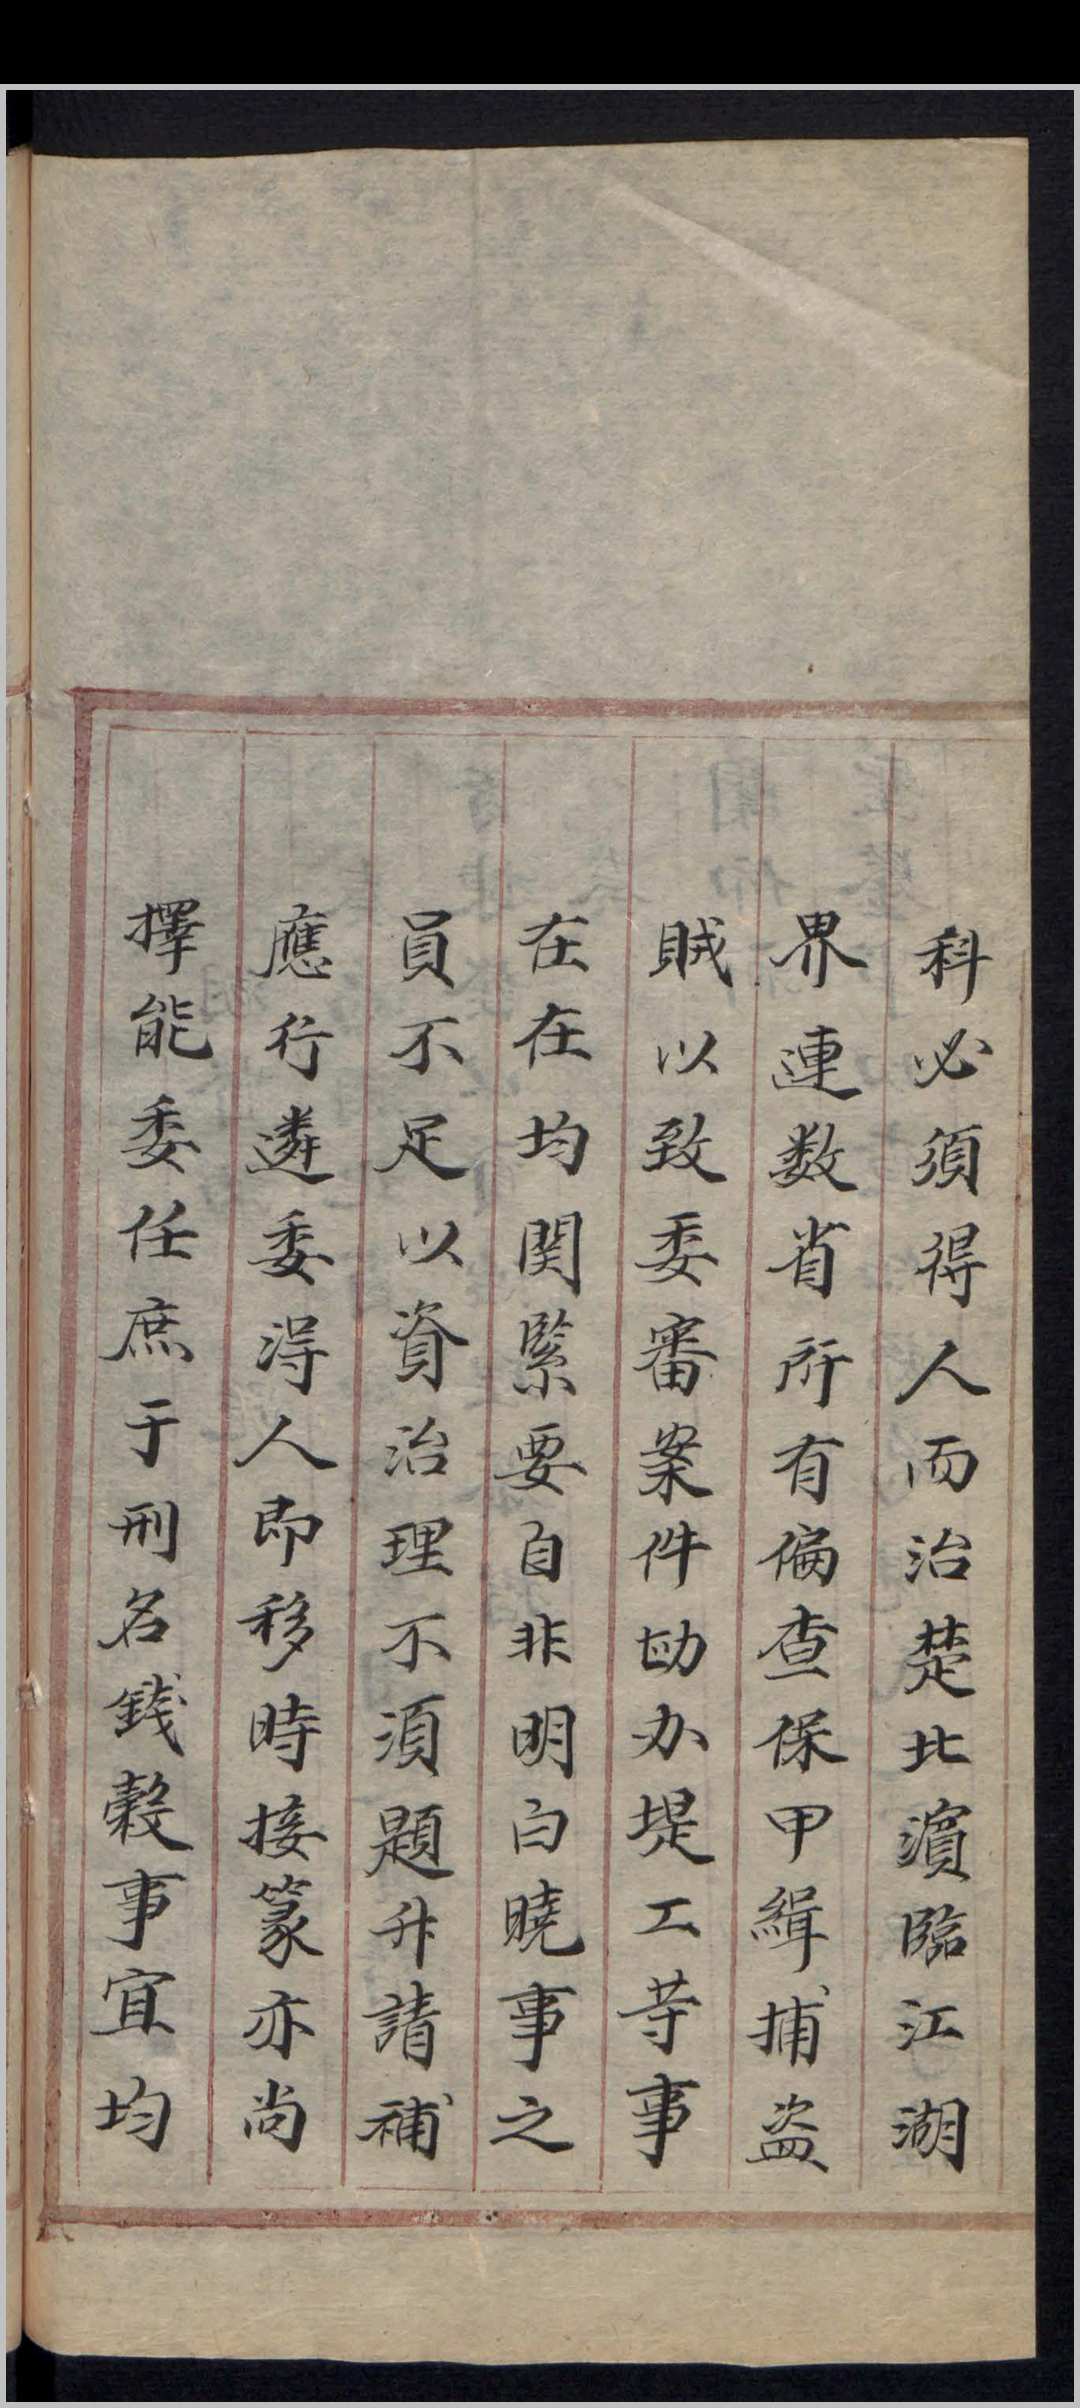 科必須得人而治楚北濵臨江湖
界連数省所有徧查保甲緝捕盗
賊以致委審案件勘办堤工䒭事
在在均関緊要自非明白曉事之
員不足以資治理不須題升請補
應行遴委淂人即移時接篆亦尚
擇能委任庶于刑名錢榖事宜均